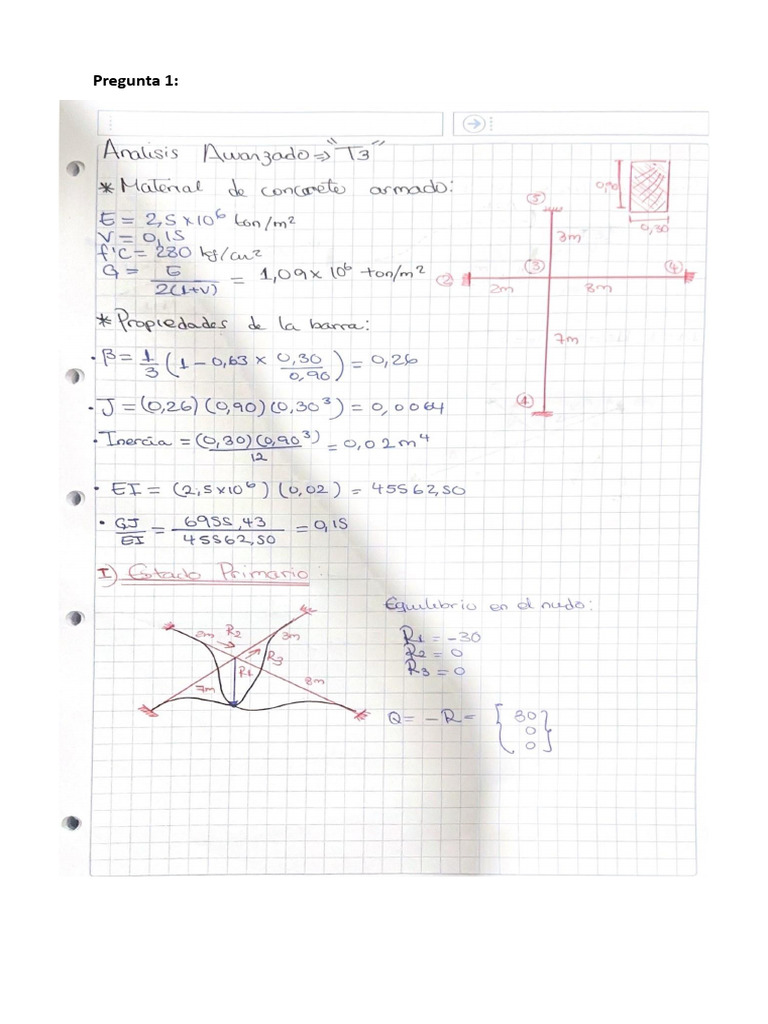 Pregunta 1:
Analisis Avanzado => "T3"
* Material de concreto armado:
E = 2,5 x 10⁶ ton/m²
V = 0,15
f'c = 280 kg/cm²
G = E / 2(1+V) = 1,09 x 10⁶ ton/m²
* Propiedades de la barra:
• β = 1/3 (1 - 0,63 x 0,30/0,90) = 0,26
• J = (0,26) (0,90) (0,30³) = 0,0064
• Inercia = (0,30)(0,90³) / 12 = 0,02 m⁴
• EI = (2,5x10⁶) (0,02) = 45562,50
• GJ/EI = 6955,43 / 45562,50 = 0,15
0,90
0,30
5
3m
2
3
4
2m
8m
7m
1
I) Estado Primario:
2m
R2
3m
R3
R1
7m
8m
Equilibrio en el nudo:
R1 = -30
R2 = 0
R3 = 0
Q = - R = [30
0
0]